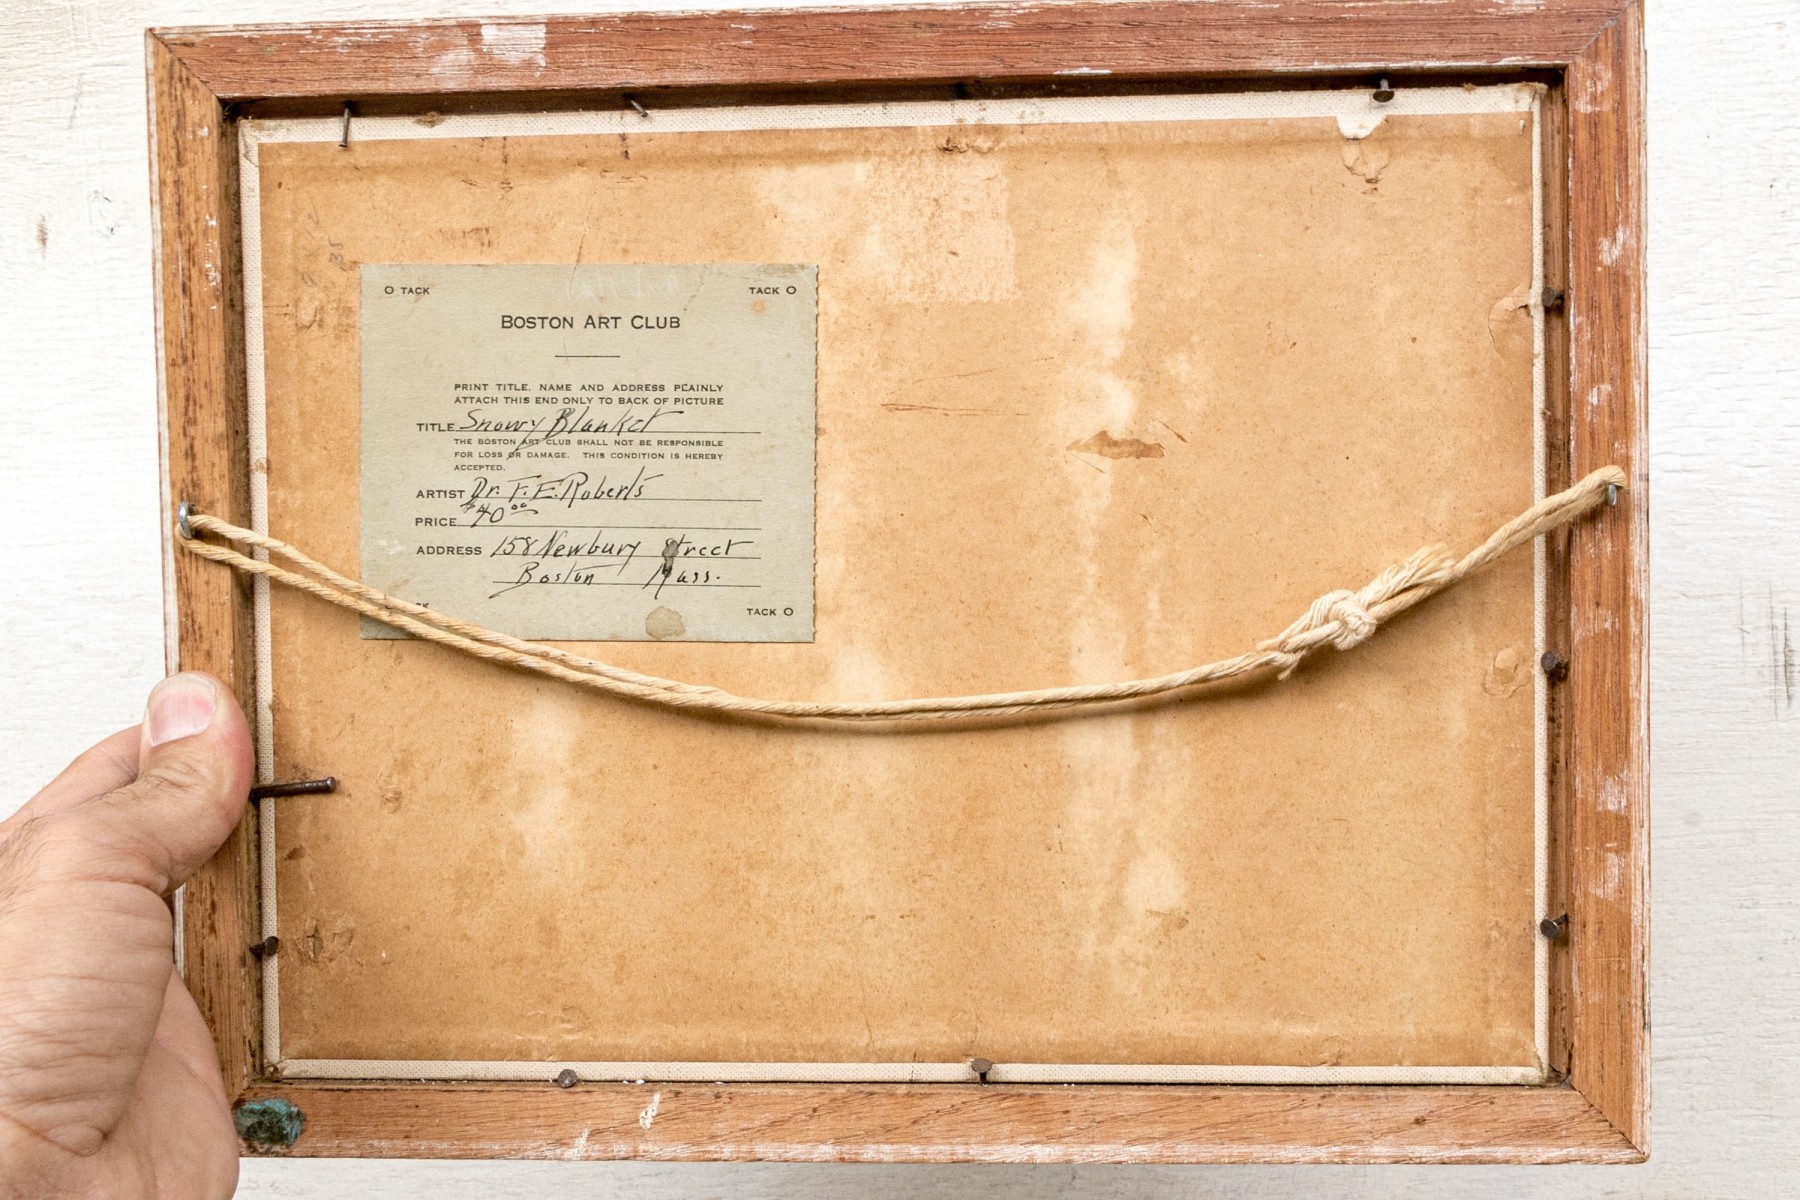 O TACK TACK O
BOSTON ART CLUB
PRINT TITLE, NAME AND ADDRESS PLAINLY
ATTACH THIS END ONLY TO BACK OF PICTURE
TITLE Snowy Blanket
THE BOSTON ART CLUB SHALL NOT BE RESPONSIBLE
FOR LOSS OR DAMAGE. THIS CONDITION IS HEREBY
ACCEPTED.
ARTIST Dr. F. E. Roberts
PRICE $40.00
ADDRESS 158 Newbury Street
Boston Mass.
TACK O